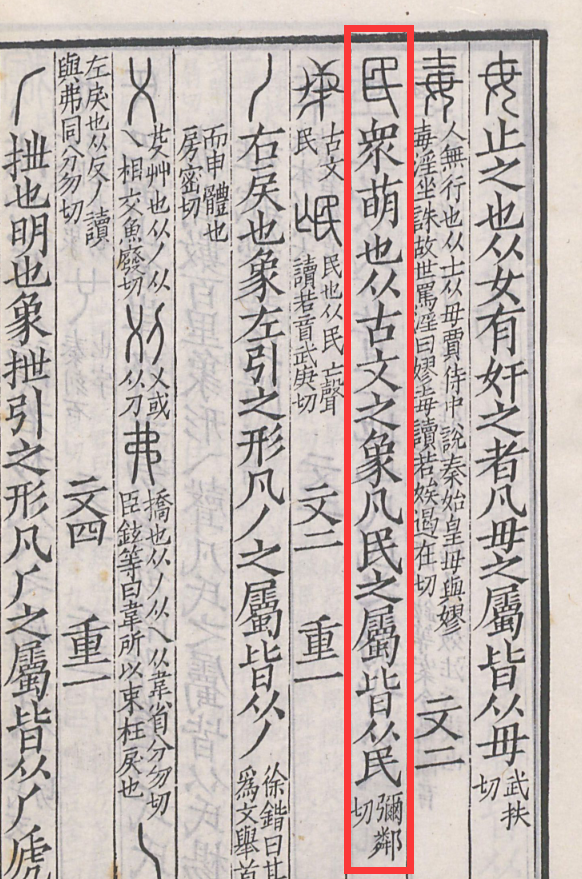 毋止之也从女有奸之者凡毋之屬皆从毋武扶切
毐人無行也从士从毋賈侍中說秦始皇母與嫪毐淫坐誅故世罵淫曰嫪毐讀若娭遏在切 文二
民衆萌也从古文之象凡民之屬皆从民彌鄰切
古文民 氓民也从民亡聲讀若盲武庚切 文二 重一
丿右戾也象左引之形凡丿之屬皆从丿徐鍇曰其爲文舉首
而申體也房密切
乂芟艸也从丿从乀相交魚廢切 刈乂或从刀 弗撟也从丿从乀从韋省分勿切臣鉉等曰韋所以束枉戾也 乀
左戾也从反丿讀與弗同分勿切 文四 重一
𠂆抴也明也象抴引之形凡𠂆之屬皆从𠂆虒